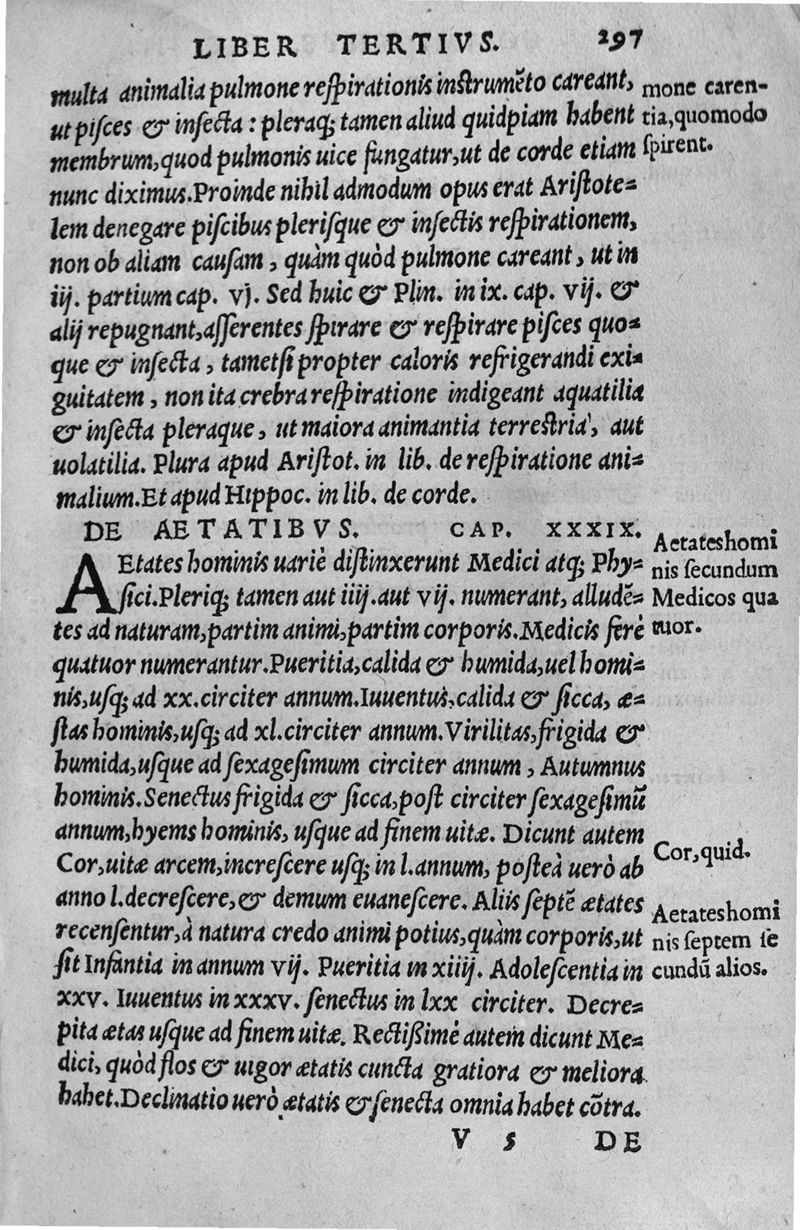 LIBER TERTIVS. 297
multa animalia pulmone respirationis instrumẽto careant,
ut pisces & insecta : pleraq; tamen aliud quidpiam habent
membrum, quod pulmonis uice fungatur, ut de corde etiam
nunc diximus. Proinde nihil admodum opus erat Aristote=
lem denegare piscibus plerisque & insectis respirationem,
non ob aliam causam, quàm quòd pulmone careant, ut in
iij. partium cap. vj. Sed huic & Plin. in ix. cap. vij. &
alij repugnant, asserentes spirare & respirare pisces quo=
que & insecta, tametsi propter caloris refrigerandi exi=
guitatem, non ita crebra respiratione indigeant aquatilia
& insecta pleraque, ut maiora animantia terrestria, aut
uolatilia. Plura apud Aristot. in lib. de respiratione ani=
malium. Et apud Hippoc. in lib. de corde.
mone caren-
tia, quomodo
spirent.
DE AETATIBVS. CAP. XXXIX.
AEtates hominis uariè distinxerunt Medici atq; Phy=
sici. Pleriq; tamen aut iiij. aut vij. numerant, alludẽ=
tes ad naturam, partim animi, partim corporis. Medicis ferè
quatuor numerantur. Pueritia, calida & humida, uel homi=
nis, usq; ad xx. circiter annum. Iuuentus, calida & sicca, æ=
stas hominis, usq; ad xl. circiter annum. Virilitas, frigida &
humida, usque ad sexagesimum circiter annum, Autumnus
hominis. Senectus frigida & sicca, post circiter sexagesimũ
annum, hyems hominis, usque ad finem uitæ. Dicunt autem
Cor, uitæ arcem, increscere usq; in l. annum, posteà uerò ab
anno l. decrescere, & demum euanescere. Aliis septẽ ætates
recensentur, à natura credo animi potius, quàm corporis, ut
sit Infantia in annum vij. Pueritia in xiiij. Adolescentia in
xxv. Iuuentus in xxxv. senectus in lxx circiter. Decre=
pita ætas usque ad finem uitæ. Rectißimè autem dicunt Me=
dici, quòd flos & uigor ætatis cuncta gratiora & meliora
habet. Declinatio uerò ætatis & senecta omnia habet cõtra.
Aetates homi
nis secundum
Medicos qua
tuor.
Cor, quid.
Aetates homi
nis septem se
cundũ alios.
V 5 DE